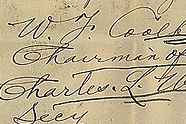 W. F. Coolb
Chairman of
Charles. L. W
Secy